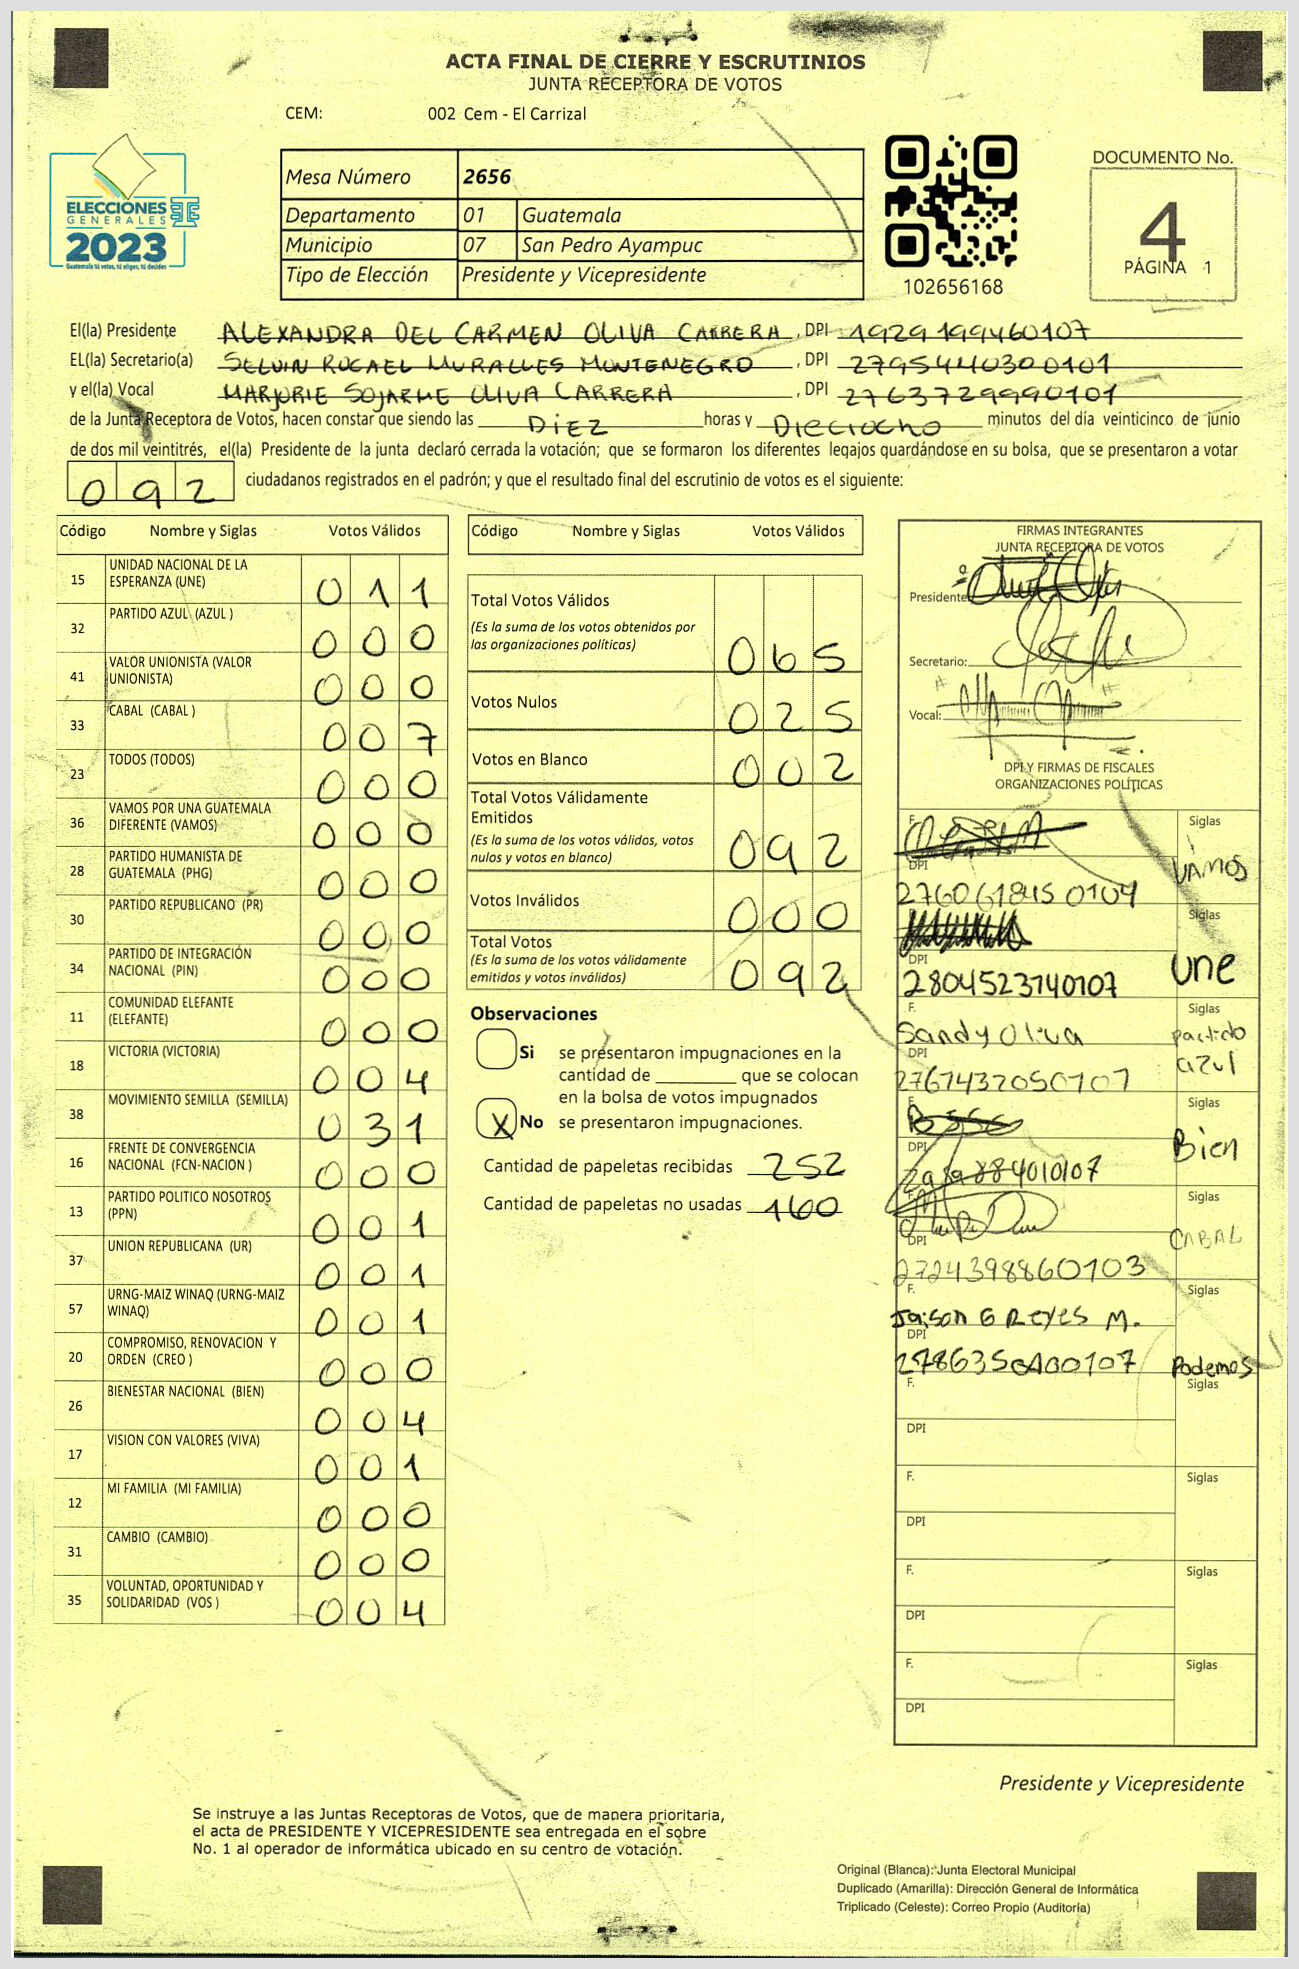 ACTA FINAL DE CIERRE Y ESCRUTINIOS
JUNTA RECEPTORA DE VOTOS
CEM: 002 Cem - El Carrizal
ELECCIONES
GENERALES
2023
Guatemala tú votas, tú eliges, tú decides
Mesa Número 2656
Departamento 01 Guatemala
Municipio 07 San Pedro Ayampuc
Tipo de Elección Presidente y Vicepresidente
102656168
DOCUMENTO No.
4
PÁGINA 1
El(la) Presidente ALEXANDRA DEL CARMEN OLIVA CARRERA, DPI 1929199460107
EL(la) Secretario(a) SELVIN ROCAEL MURALLES MONTENEGRO, DPI 2795440300101
y el(la) Vocal MARJORIE OLIVA CARRERA, DPI 2763729990101
de la Junta Receptora de Votos, hacen constar que siendo las DIEZ horas y DIECIOCHO minutos del día veinticinco de junio
de dos mil veintitrés, el(la) Presidente de la junta declaró cerrada la votación; que se formaron los diferentes legajos guardándose en su bolsa, que se presentaron a votar
092 ciudadanos registrados en el padrón; y que el resultado final del escrutinio de votos es el siguiente:
Código Nombre y Siglas Votos Válidos
15 UNIDAD NACIONAL DE LA ESPERANZA (UNE) 011
32 PARTIDO AZUL (AZUL ) 000
41 VALOR UNIONISTA (VALOR UNIONISTA) 000
33 CABAL (CABAL ) 007
23 TODOS (TODOS) 000
36 VAMOS POR UNA GUATEMALA DIFERENTE (VAMOS) 000
28 PARTIDO HUMANISTA DE GUATEMALA (PHG) 000
30 PARTIDO REPUBLICANO (PR) 000
34 PARTIDO DE INTEGRACIÓN NACIONAL (PIN) 000
11 COMUNIDAD ELEFANTE (ELEFANTE) 000
18 VICTORIA (VICTORIA) 004
38 MOVIMIENTO SEMILLA (SEMILLA) 031
16 FRENTE DE CONVERGENCIA NACIONAL (FCN-NACION ) 000
13 PARTIDO POLITICO NOSOTROS (PPN) 001
37 UNION REPUBLICANA (UR) 001
57 URNG-MAIZ WINAQ (URNG-MAIZ WINAQ) 001
20 COMPROMISO, RENOVACION Y ORDEN (CREO ) 000
26 BIENESTAR NACIONAL (BIEN) 004
17 VISION CON VALORES (VIVA) 001
12 MI FAMILIA (MI FAMILIA) 000
31 CAMBIO (CAMBIO) 000
35 VOLUNTAD, OPORTUNIDAD Y SOLIDARIDAD (VOS ) 004
Código Nombre y Siglas Votos Válidos
Total Votos Válidos 065
(Es la suma de los votos obtenidos por
las organizaciones políticas)
Votos Nulos 025
Votos en Blanco 002
Total Votos Válidamente
Emitidos 092
(Es la suma de los votos válidos, votos
nulos y votos en blanco)
Votos Inválidos 000
Total Votos 092
(Es la suma de los votos válidamente
emitidos y votos inválidos)
Observaciones
Si se presentaron impugnaciones en la
cantidad de ________ que se colocan
en la bolsa de votos impugnados
X No se presentaron impugnaciones.
Cantidad de papeletas recibidas 252
Cantidad de papeletas no usadas 160
FIRMAS INTEGRANTES
JUNTA RECEPTORA DE VOTOS
Presidente:
Secretario:
Vocal:
DPI Y FIRMAS DE FISCALES
ORGANIZACIONES POLÍTICAS
F. Siglas
VAMOS
DPI
Siglas
DPI
2804523740107 une
F. Siglas
Sandy Oliva partido
DPI azul
2767437050707
F. Siglas
Bien
DPI
F. Siglas
CABAL
DPI
2724398860103
F. Siglas
Jaison G Reyes M.
DPI
Podemos
F. Siglas
DPI
F. Siglas
DPI
F. Siglas
DPI
F. Siglas
DPI
Presidente y Vicepresidente
Se instruye a las Juntas Receptoras de Votos, que de manera prioritaria,
el acta de PRESIDENTE Y VICEPRESIDENTE sea entregada en el sobre
No. 1 al operador de informática ubicado en su centro de votación.
Original (Blanca): Junta Electoral Municipal
Duplicado (Amarilla): Dirección General de Informática
Triplicado (Celeste): Correo Propio (Auditoría)